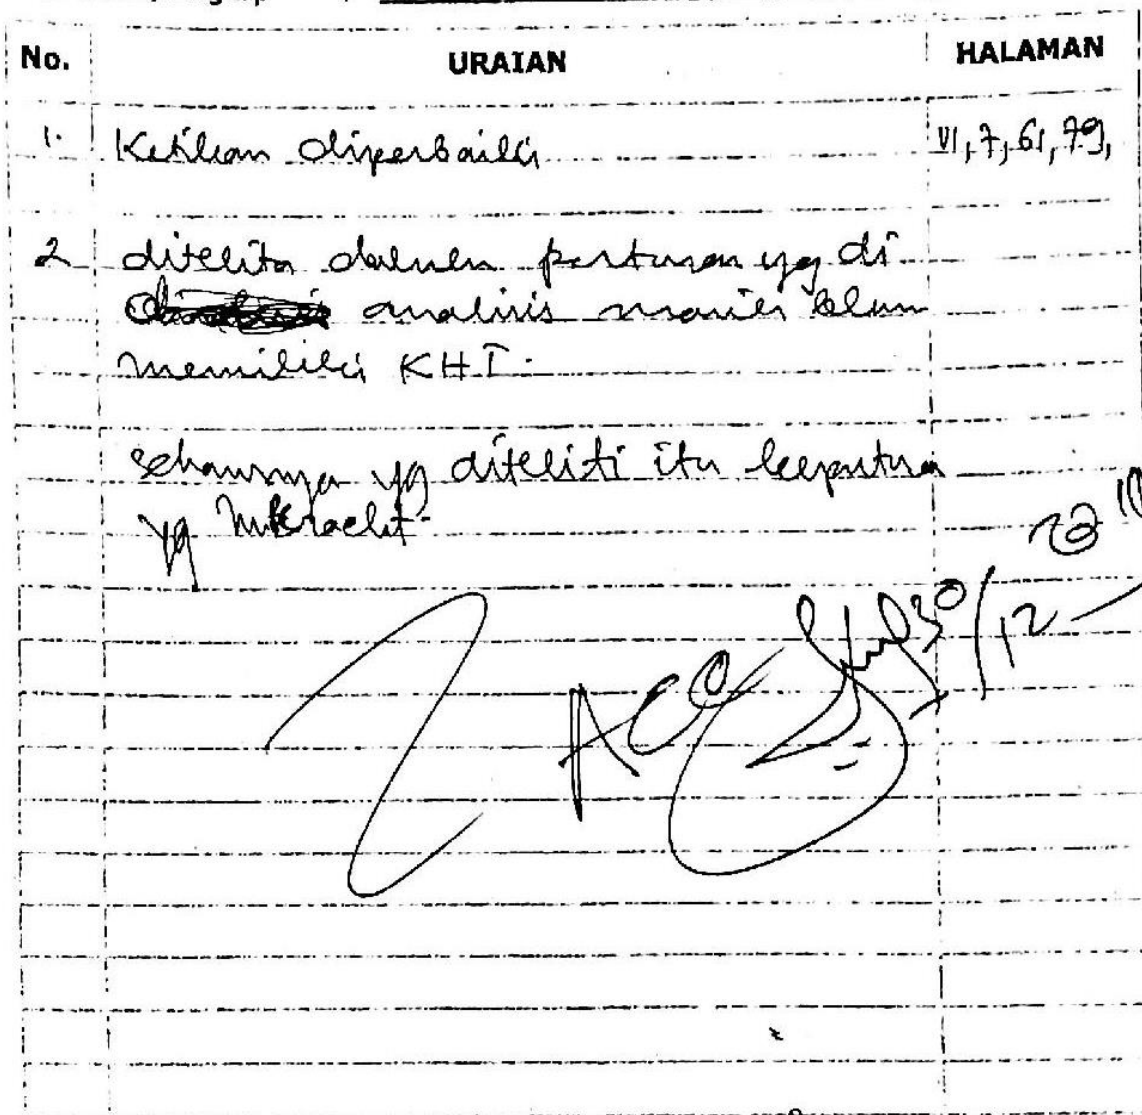 No. URAIAN HALAMAN
1. Ketikan diperbaiki VI, 7, 61, 79,
2 ditelita putusan yg di
analisis belum
memiliki KHI.
seharusnya yg diteliti itu keputusan
yg Inkracht.
ACC 30/12